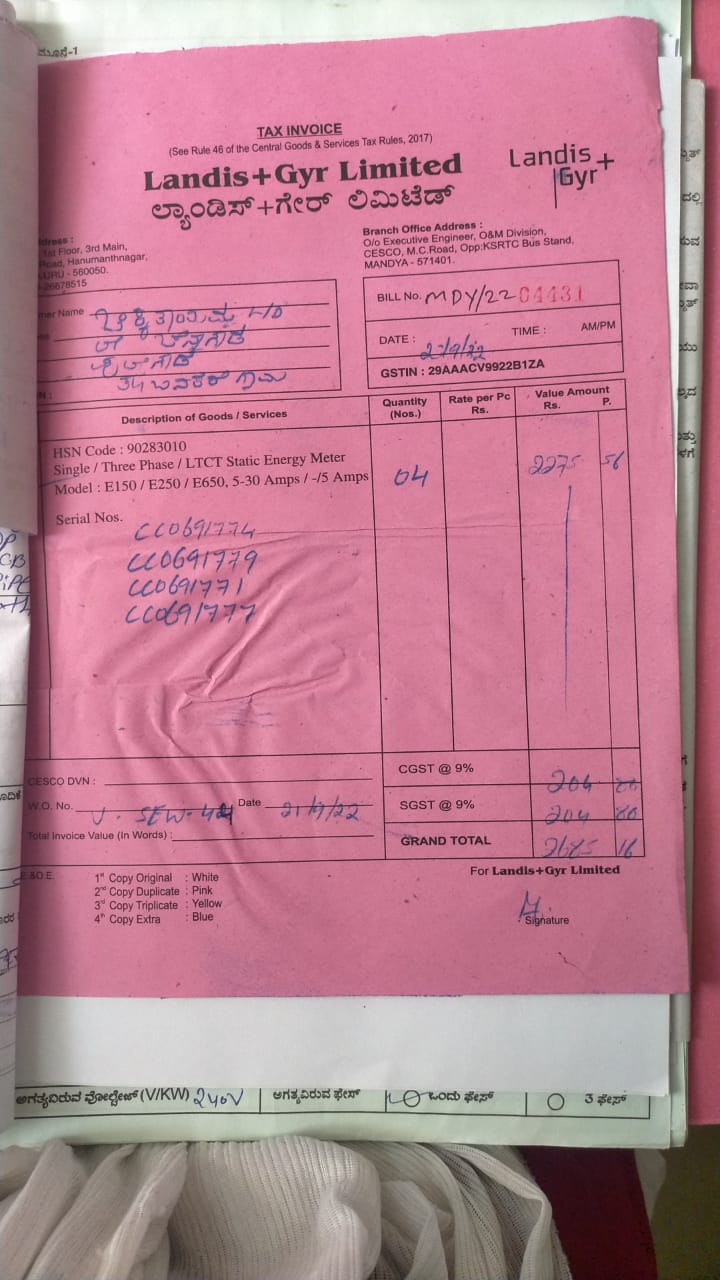 ಮೂನೆ-1
TAX INVOICE
(See Rule 46 of the Central Goods & Services Tax Rules, 2017)
Landis+Gyr Limited
ಲ್ಯಾಂಡಿಸ್+ಗೇರ್ ಲಿಮಿಟೆಡ್
Landis
Gyr+
dress :
1st Floor, 3rd Main,
Road, Hanumanthnagar,
URU - 560050.
26678515
Branch Office Address :
O/o Executive Engineer, O&M Division,
CESCO, M.C.Road, Opp:KSRTC Bus Stand,
MANDYA - 571401.
mer Name
BILL No. MDY/22 04431
DATE : 21/9/22 TIME : AM/PM
GSTIN : 29AAACV9922B1ZA
Description of Goods / Services
Quantity (Nos.)
Rate per Pc Rs.
Value Amount Rs. P.
HSN Code : 90283010
Single / Three Phase / LTCT Static Energy Meter
Model : E150 / E250 / E650, 5-30 Amps / -/5 Amps
04 2275 56
Serial Nos.
CC0691774
CC0691779
CC0691771
CC0691777
CESCO DVN :
CGST @ 9% 204 80
W.O. No. Date 21/9/22
SGST @ 9% 204 80
Total Invoice Value (In Words) :
GRAND TOTAL 2685 16
E.&O.E.
1st Copy Original : White
2nd Copy Duplicate : Pink
3rd Copy Triplicate : Yellow
4th Copy Extra : Blue
For Landis+Gyr Limited
Signature
ಅಗತ್ಯವಿರುವ ವೋಲ್ಟೇಜ್ (V/KW) 240V
ಅಗತ್ಯವಿರುವ ಫೇಸ್
ಒಂದು ಫೇಸ್
3 ಫೇಸ್